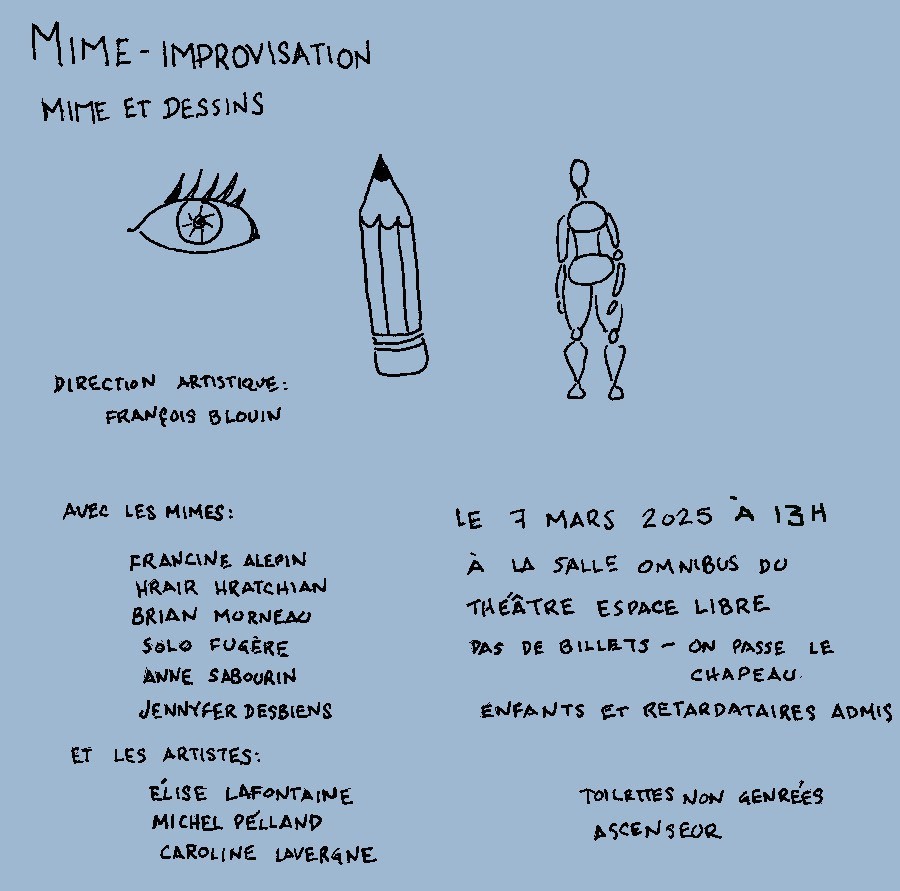 MIME - IMPROVISATION
MIME ET DESSINS
DIRECTION ARTISTIQUE:
FRANÇOIS BLOUIN
AVEC LES MIMES:
FRANCINE ALEPIN
HRAIR HRATCHIAN
BRIAN MORNEAU
SOLO FUGÈRE
ANNE SABOURIN
JENNYFER DESBIENS
ET LES ARTISTES:
ÉLISE LAFONTAINE
MICHEL PÉLLAND
CAROLINE LAVERGNE
LE 7 MARS 2025 À 13H
À LA SALLE OMNIBUS DU
THÉÂTRE ESPACE LIBRE
PAS DE BILLETS - ON PASSE LE
CHAPEAU.
ENFANTS ET RETARDATAIRES ADMIS
TOILETTES NON GENRÉES
ASCENSEUR